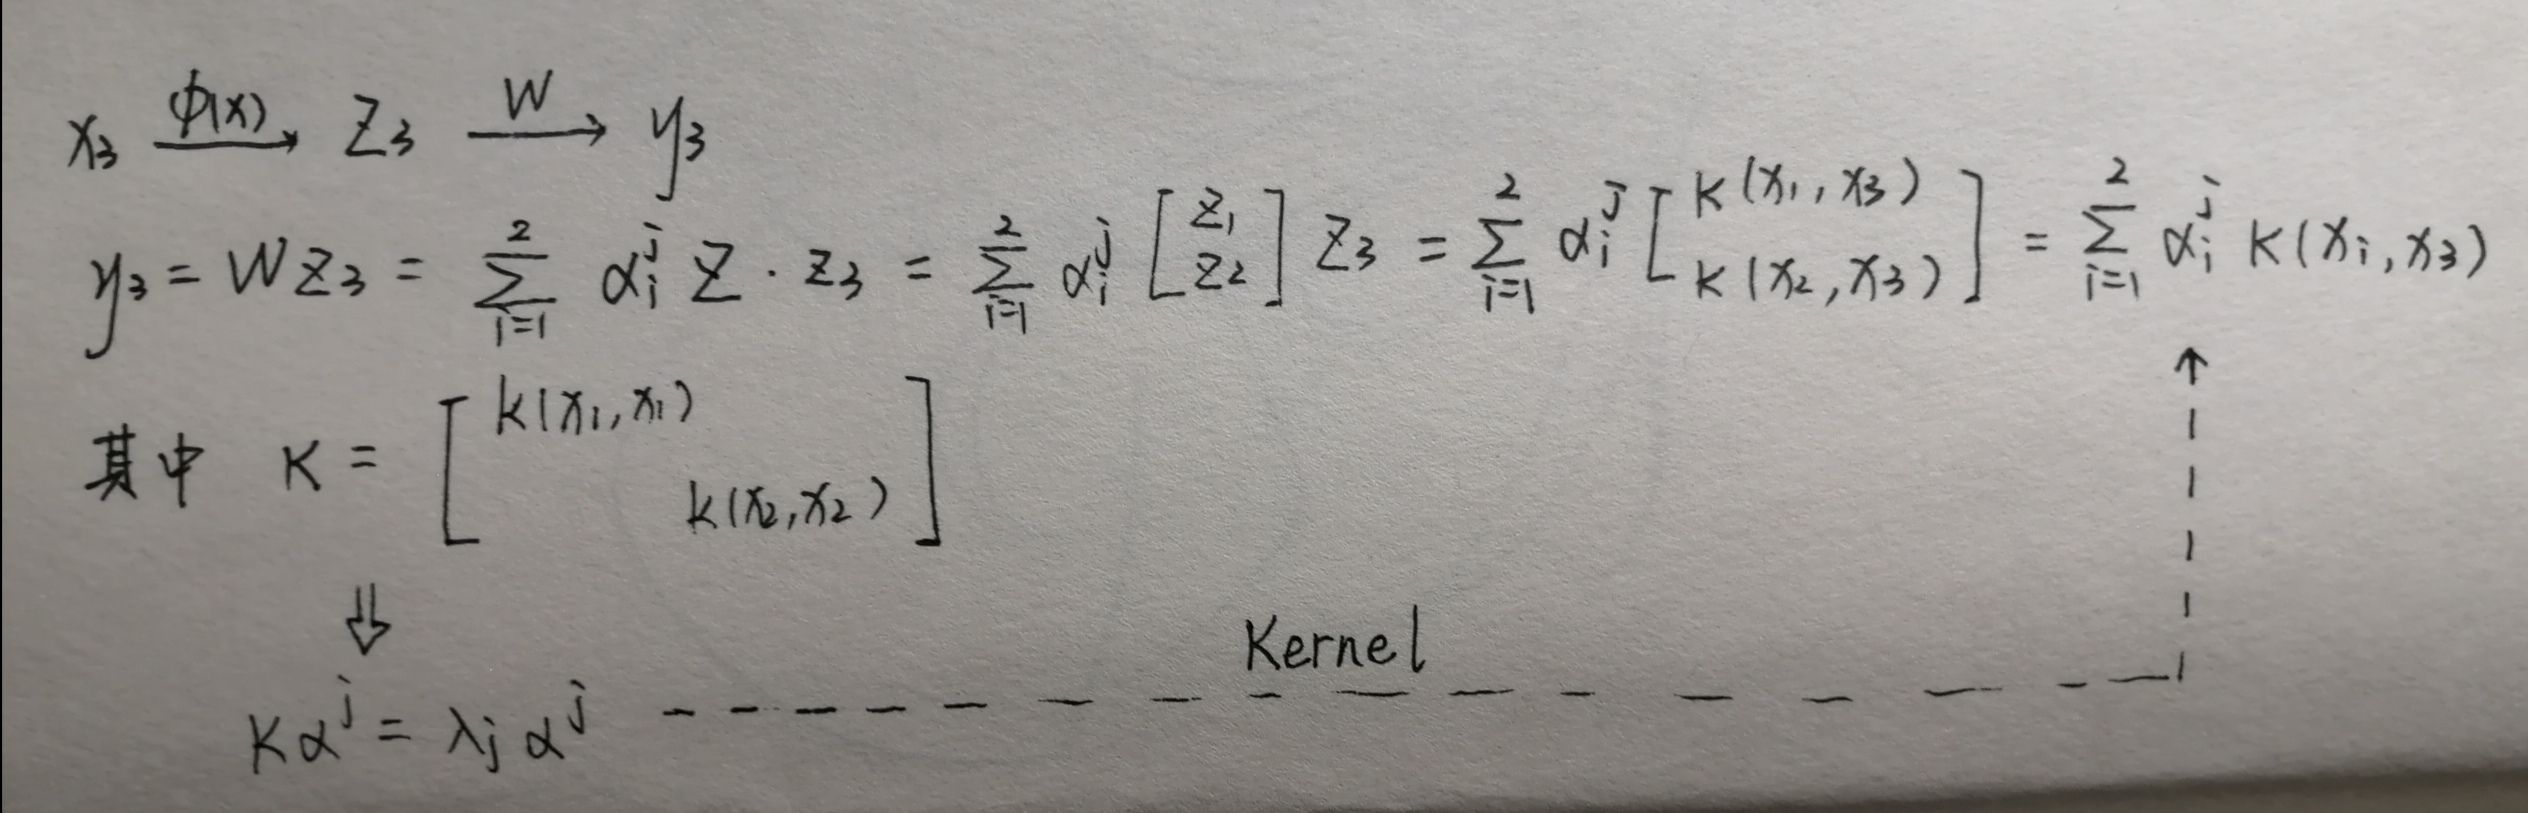 x₃ —ϕ(x)→ z₃ —W→ y₃
y₃ = W z₃ = ∑_{i=1}^{2} α_i^j Z · z₃ = ∑_{i=1}^{2} α_i^j [z₁ ; z₂] z₃ = ∑_{i=1}^{2} α_i^j [k(x₁, x₃) ; k(x₂, x₃)] = ∑_{i=1}^{2} α_i^j k(x_i, x₃)
其中 K = [k(x₁, x₁) ; k(x₂, x₂)]
⇓
Kernel
Kα^j = λ_j α^j